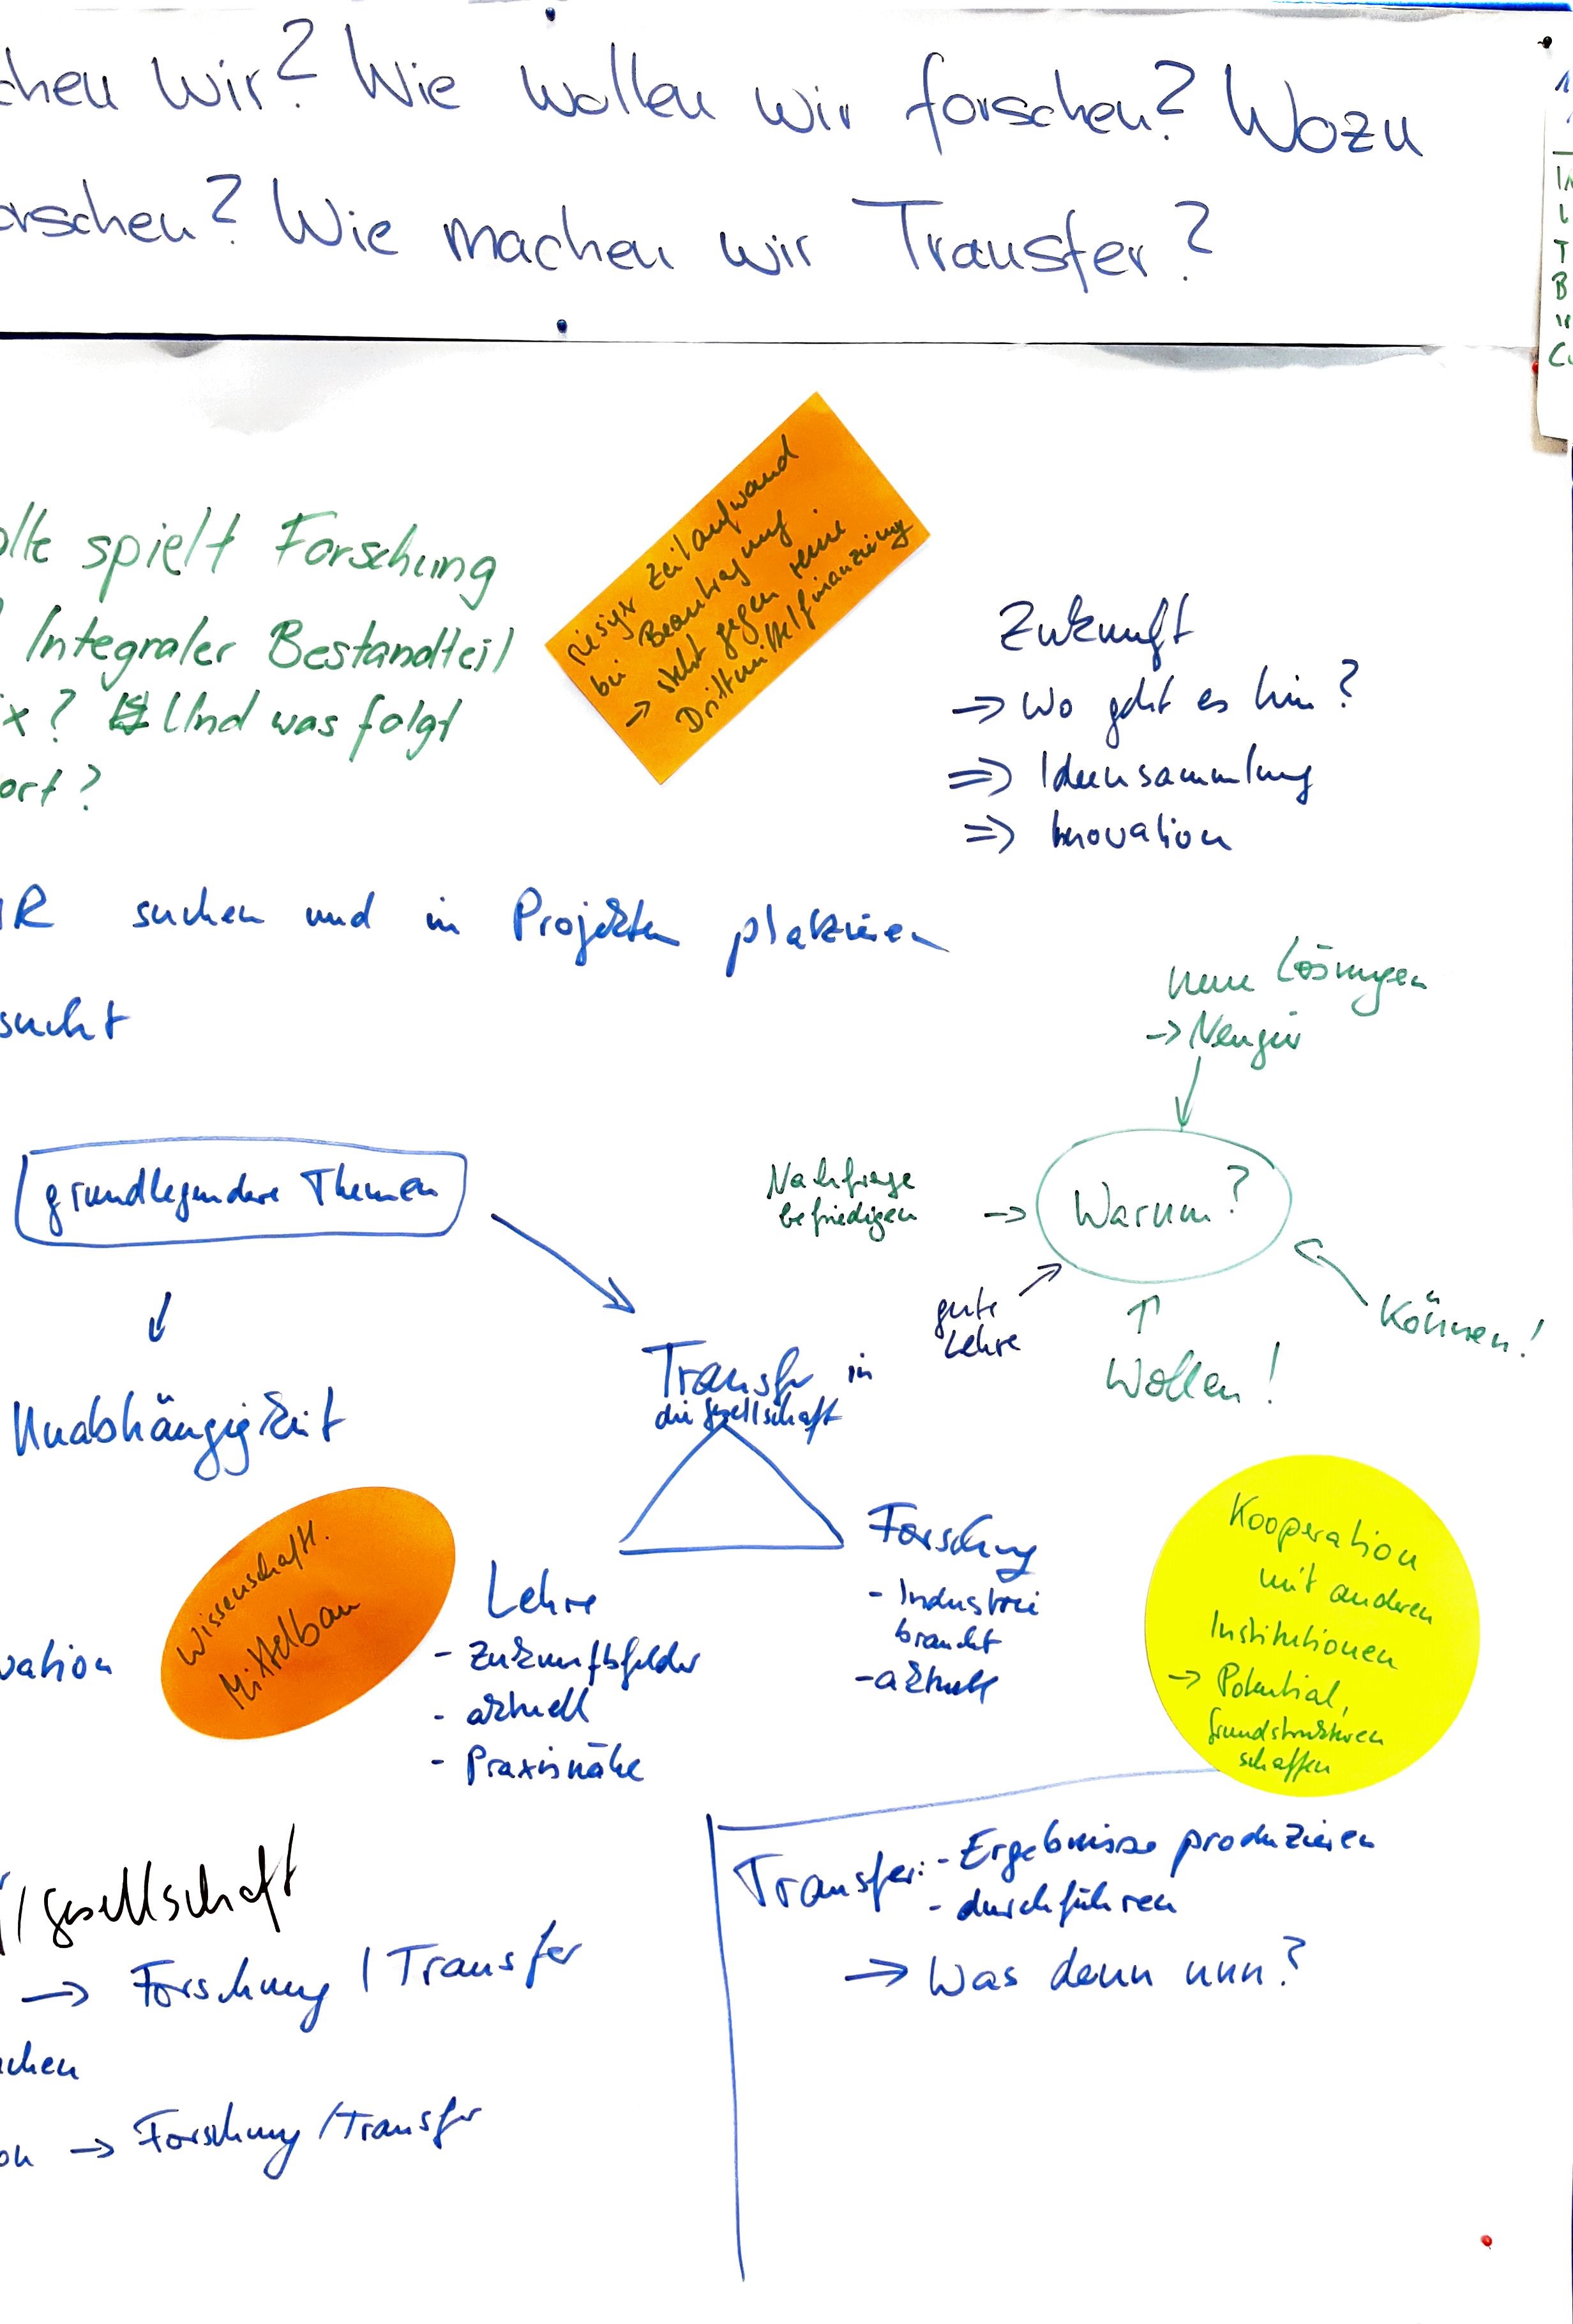 chen wir? Wie wollen wir forschen? Wozu
orschen? Wie machen wir Transfer?
olle spielt Forschung
Integraler Bestandteil
x? Und was folgt
ort?
riesiger Zeitaufwand
bei Beantragung
→ steht gegen reine
Drittmittelfinanzierung
Zukunft
→ Wo geht es hin?
⇒ Ideensammlung
⇒ Innovation
R suchen und in Projekten platzieren
sucht
neue Lösungen
→ Neugier
Warum?
Nachfrage
befriedigen →
gute
Lehre
Wollen!
Können!
grundlegendere Themen
Unabhängigkeit
Transfer in
die Gesellschaft
Wissenschaftl.
Mittelbau
vation
Lehre
- Zukunftsfelder
- aktuell
- Praxisnähe
Forschung
- Industrie
braucht
- aktuell
Kooperation
mit anderen
Institutionen
→ Potential,
Grundstrukturen
schaffen
/Gesellschaft
→ Forschung / Transfer
chen
on → Forschung / Transfer
Transfer: - Ergebnisse produzieren
- durchführen
→ Was denn nun?